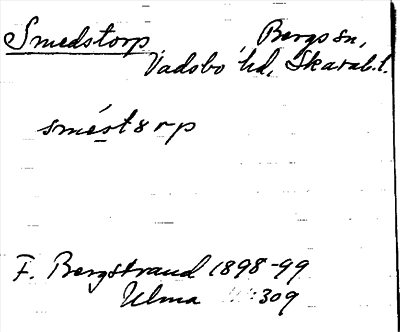 Smedstorp, Bergs sn,
Vadsbo hd, Skarab. l.
smést8rp
F. Bergstrand 1898-99
Ulma 309